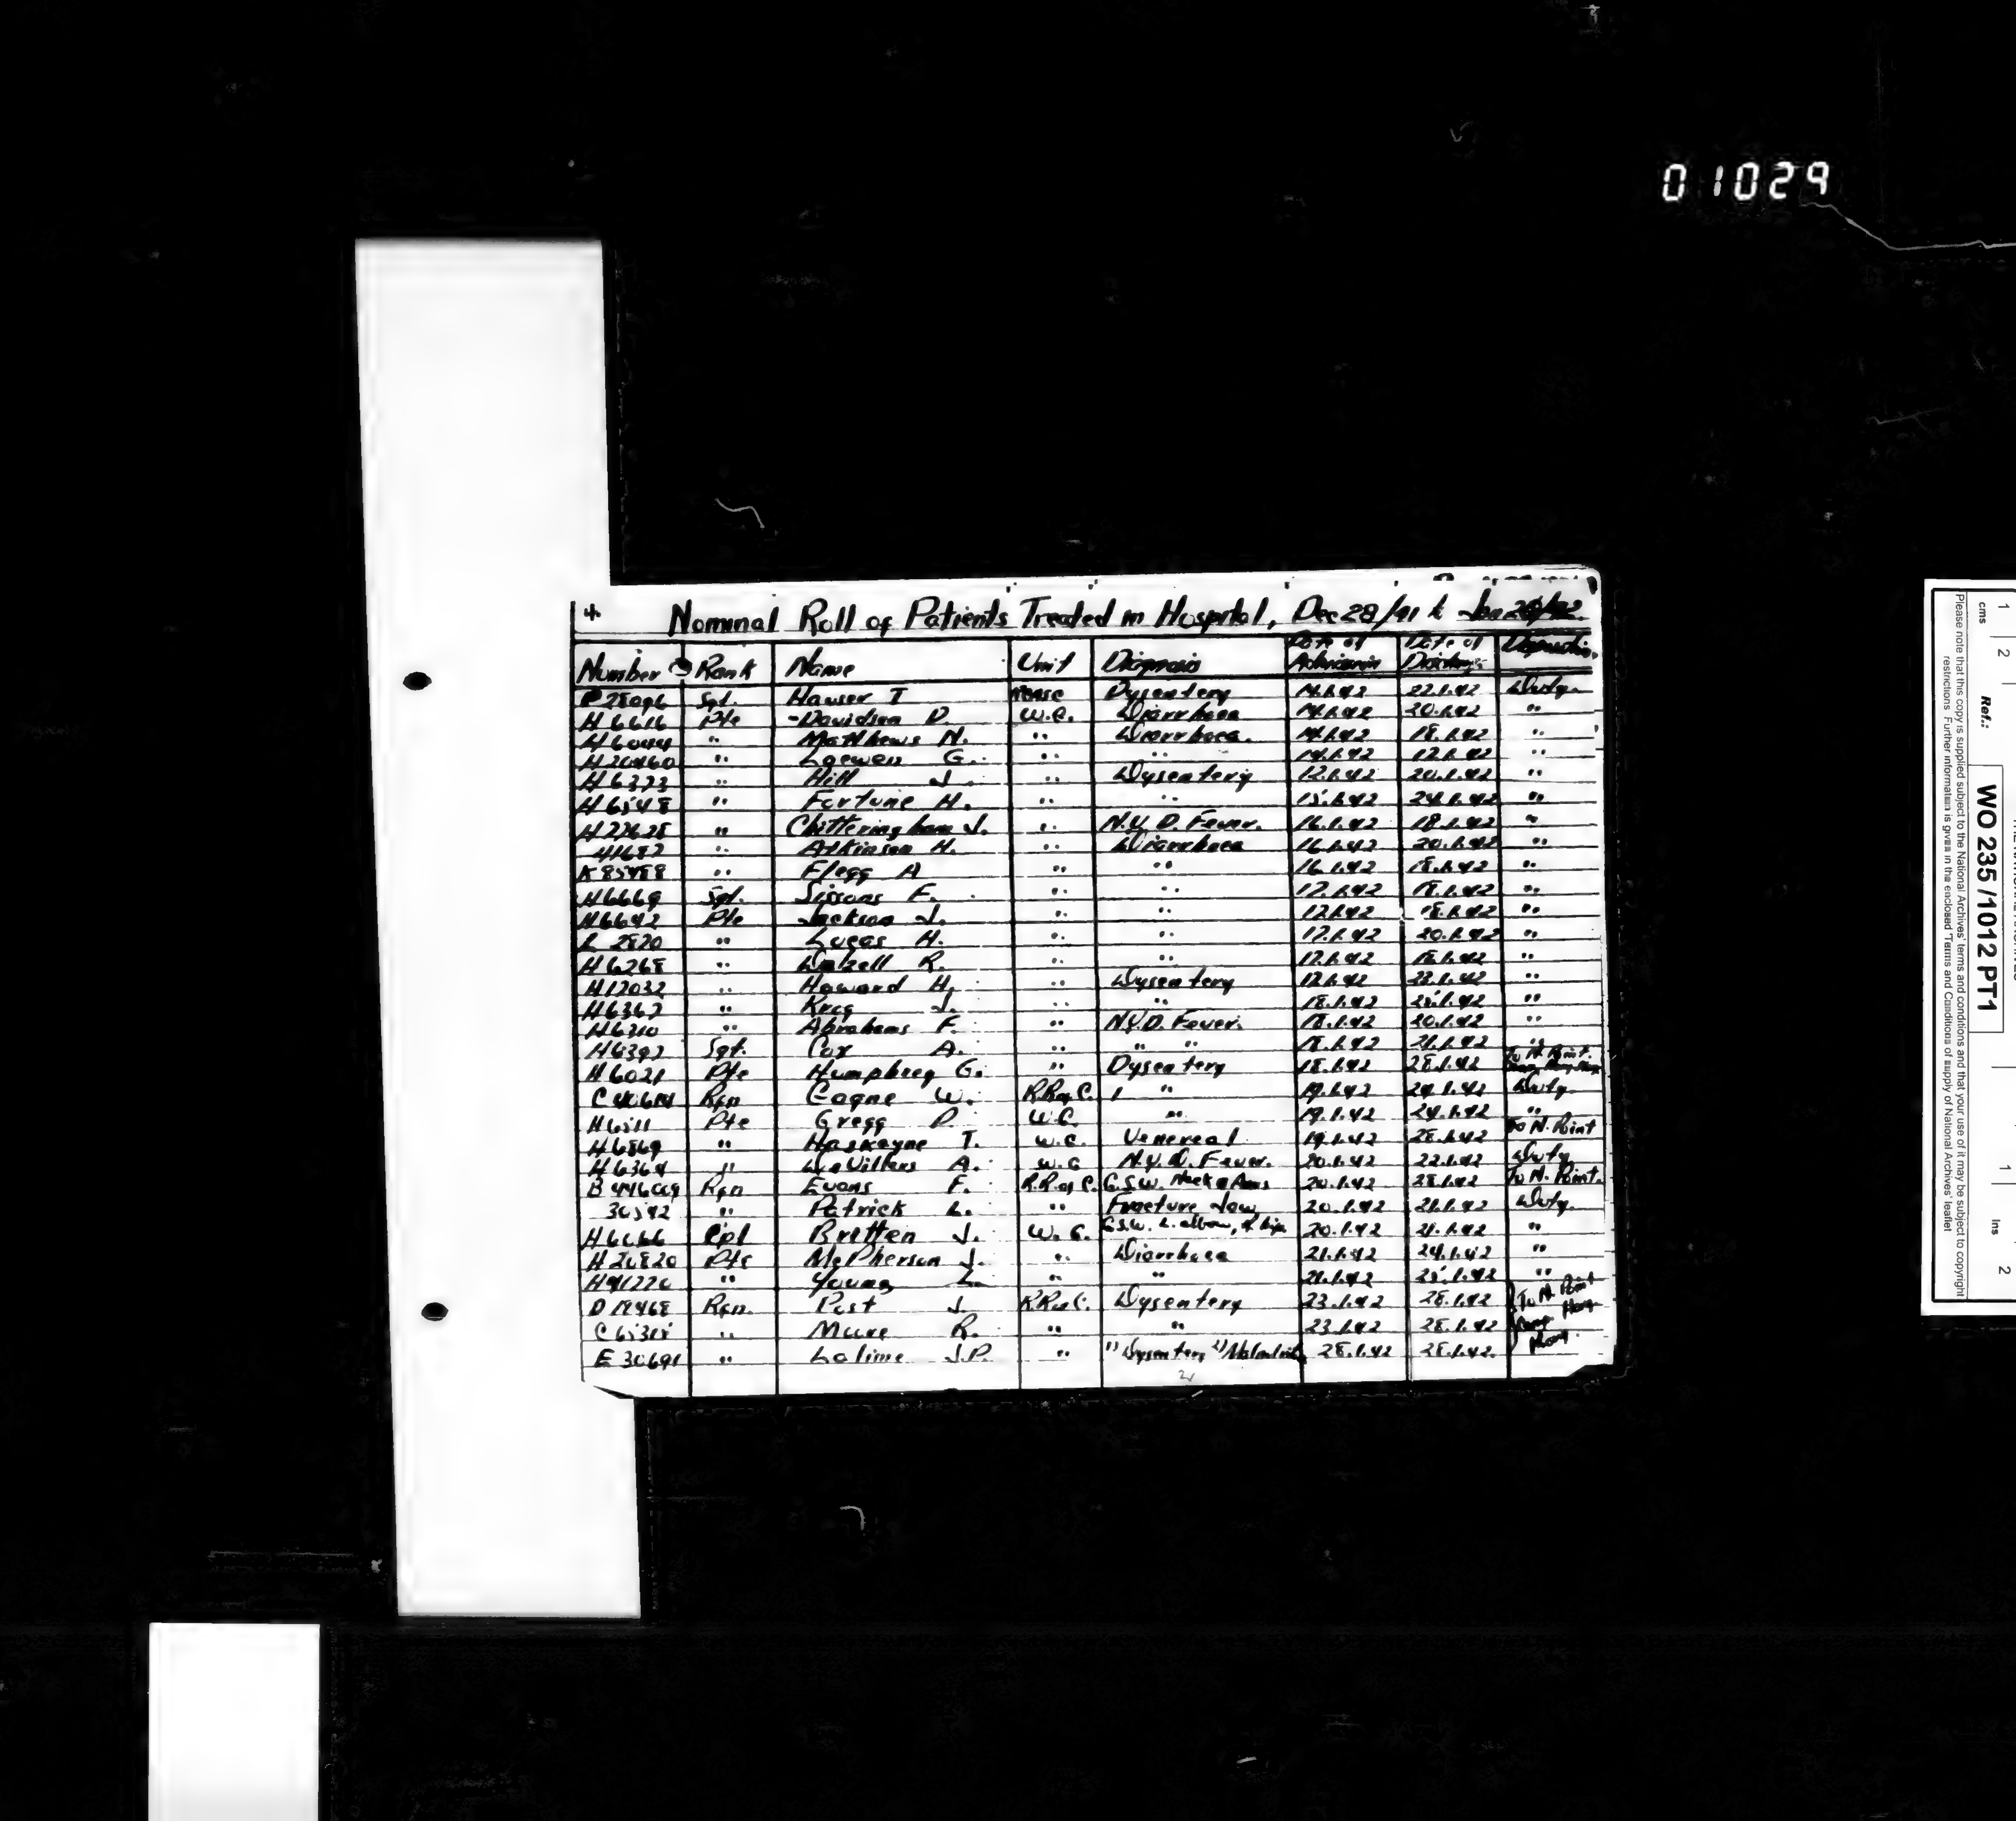 01029
4 Nominal Roll of Patients Treated in Hospital, Dec 28/41 to Jan
Number Rank Name Unit Diagnosis Date of Admission Date of Discharge Disposition
Sgt. Hauser T Dysentery 14.1.42 22.1.42 Duty.
H6616 Pte Davidson D. W.G. Diarrhoea 14.1.42 20.1.42 "
H6044 " Matthews N. " Diarrhoea. 14.1.42 18.1.42 "
H20460 " Loewen G. " " 14.1.42 17.1.42 "
H6373 " Hill J. " Dysentery 12.1.42 20.1.42 "
H6548 " Fortune H. " " 15.1.42 24.1.42 "
" Chitteringham J. " N.Y.D. Fever. 16.1.42 18.1.42 "
41687 " Atkinson H. " Diarrhoea 16.1.42 20.1.42 "
K85488 " Flegg A " " 16.1.42 18.1.42 "
H6669 Sgt. Sissons F. " " 17.1.42 18.1.42 "
H6642 Pte Jackson J. " " 17.1.42 18.1.42 "
L 2820 " Lucas H. " " 17.1.42 20.1.42 "
H6268 " Dalzell R. " " 17.1.42 18.1.42 "
H17032 " Howard H. " Dysentery 17.1.42 1.42 "
H6367 " J. " " 18.1.42 25.1.42 "
H6210 " Abrahams F. " N.Y.D. Fever. 18.1.42 20.1.42 "
H6392 Sgt. Cox A. " " " 18.1.42 21.1.42 "
H6021 Pte Humphrey G. " Dysentery 18.1.42 28.1.42 To N. Point.
Rfn W. R.R. of C. " 19.1.42 24.1.42 Duty
H6511 Pte Gregg D. W.G. " 19.1.42 24.1.42 "
H6869 " Haskayne T. W.G. Venereal 19.1.42 28.1.42 To N. Point
H6364 " A. W.G N.Y.D. Fever. 20.1.42 22.1.42 Duty
Rfn Evans F. R.R. of C. G.S.W. Neck & Arms 20.1.42 28.1.42 To N. Point.
" Patrick L. " Fracture Jaw 20.1.42 21.1.42 Duty.
H6666 Cpl Britten J. W.G. G.S.W. L. elbow, 20.1.42 21.1.42 "
H20820 Pte McPherson J. " Diarrhoea 21.1.42 24.1.42 "
H41220 " Young L. " " 21.1.42 25.1.42 "
D18468 Rfn. Post J. R.R. of C. Dysentery 23.1.42 28.1.42 To N. Point
" R. " " 23.1.42 28.1.42 Hong
E 30691 " Lalime J.P. " 1) Dysentery 2) 28.1.42 28.1.42. Kong.
cms 1 2 1 Ins 2
Ref.: WO 235 / 1012 PT1
Please note that this copy is supplied subject to the National Archives' terms and conditions and that your use of it may be subject to copyright
restrictions. Further information is given in the enclosed 'Terms and Conditions of supply of National Archives' leaflet